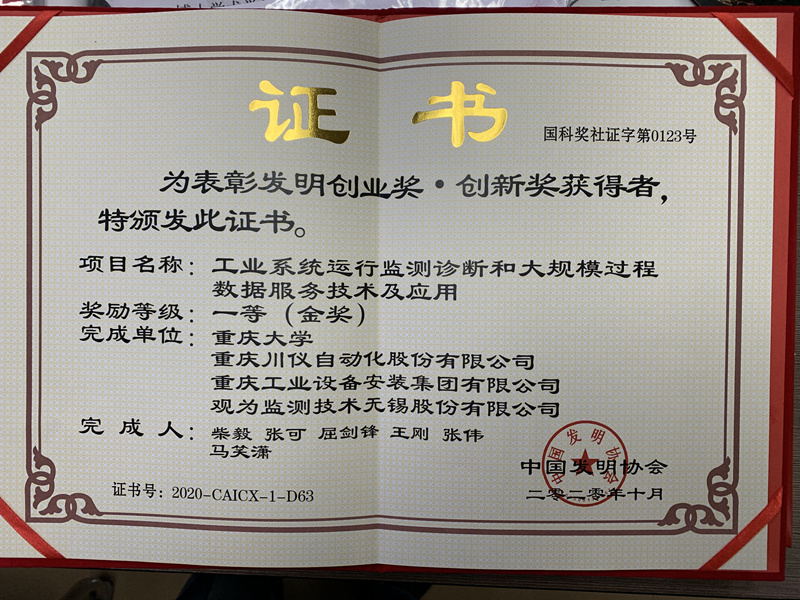 证书
国科奖社证字第0123号
为表彰发明创业奖·创新奖获得者，
特颁发此证书。
项目名称：工业系统运行监测诊断和大规模过程
数据服务技术及应用
奖励等级：一等（金奖）
完成单位：重庆大学
重庆川仪自动化股份有限公司
重庆工业设备安装集团有限公司
观为监测技术无锡股份有限公司
完成人：柴毅 张可 屈剑锋 王刚 张伟
马笑潇
中国发明协会
中国发明协会
二零二零年十月
证书号：2020-CAICX-1-D63